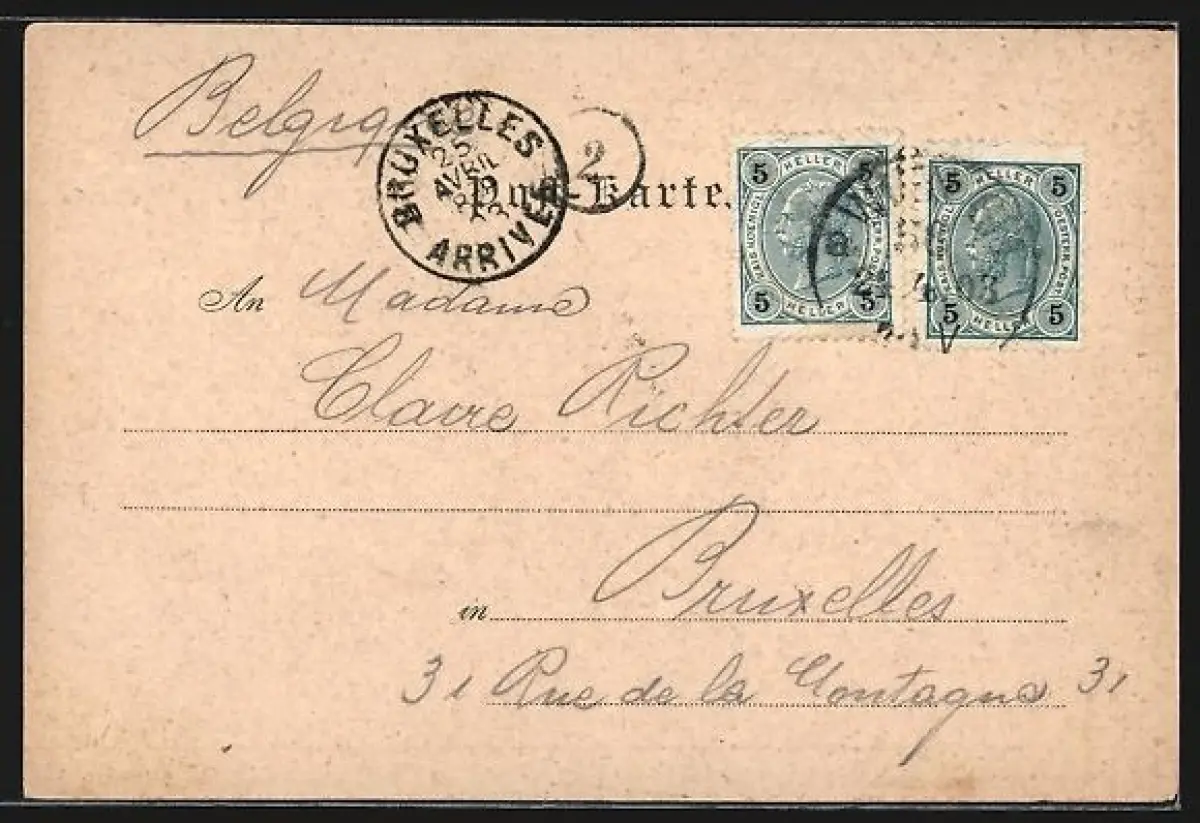 Belgiq
BRUXELLES
25
AVRIL
ARRIVEE
2
Post-Karte.
5 HELLER 5
5 HELLER 5
5 HELLER 5
5 HELLER 5
An Madame
Claire Richter
in Bruxelles
31 Rue de la Montagne 31